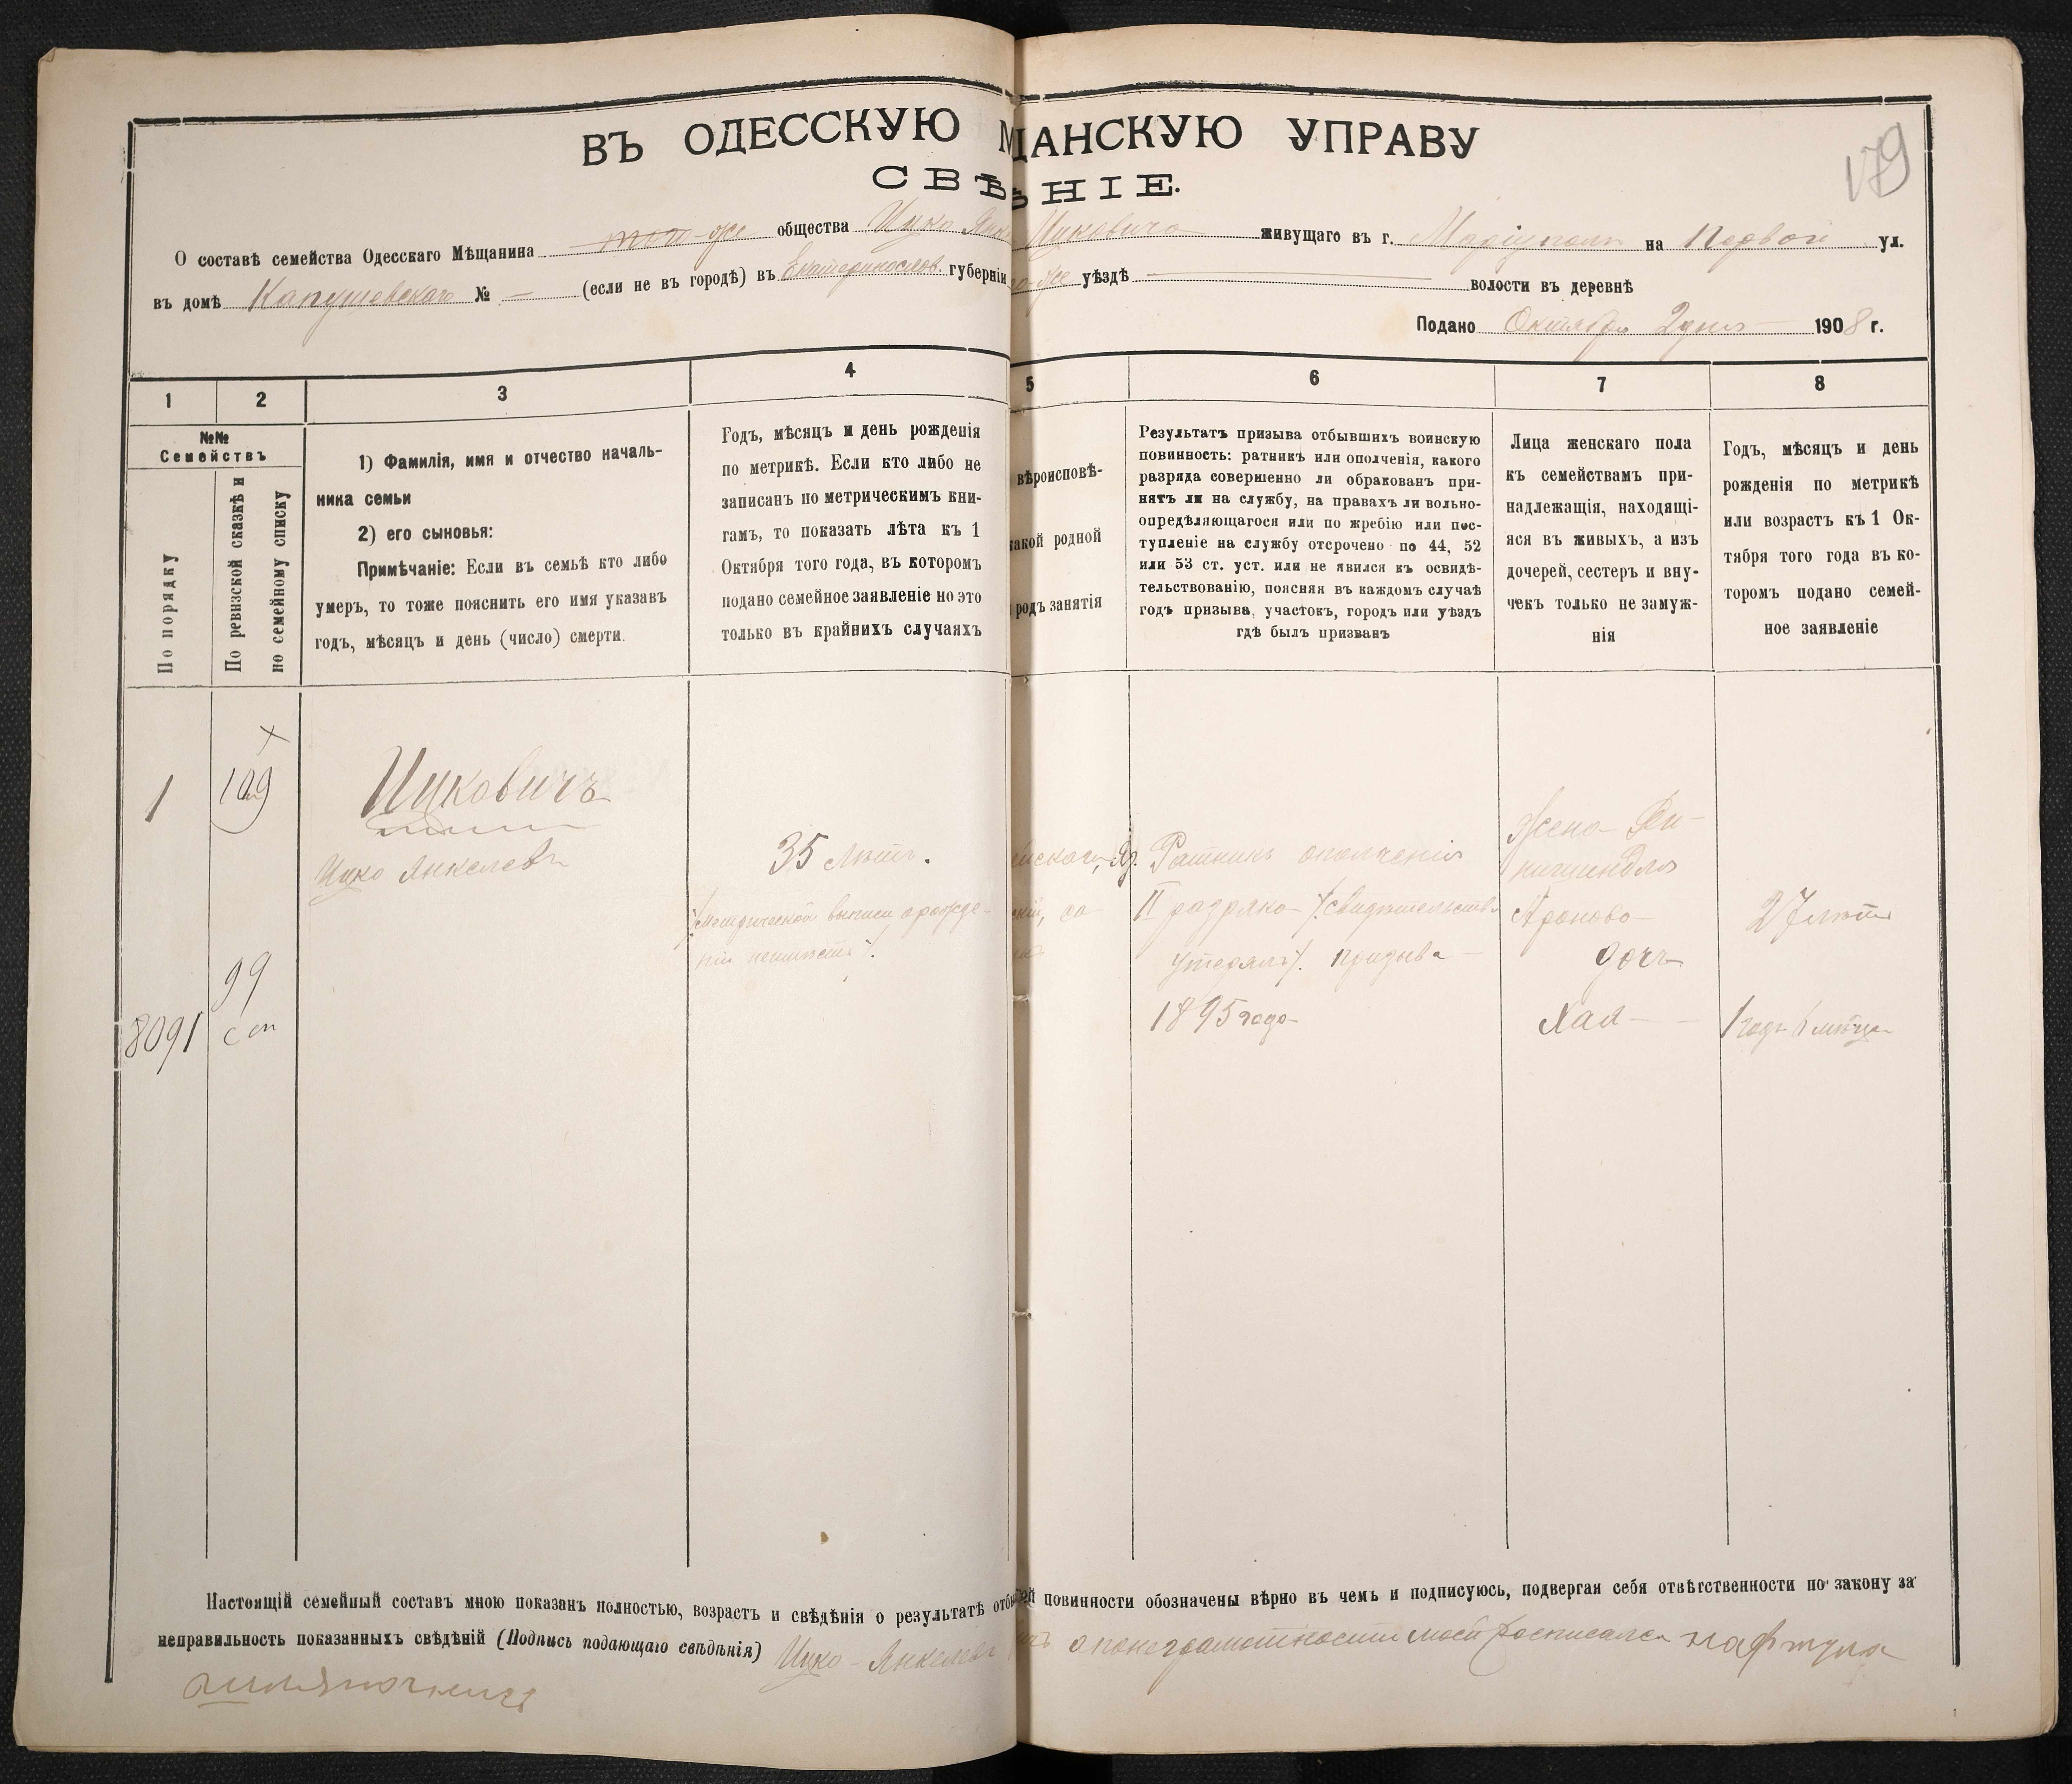 179
ВЪ ОДЕССКУЮ М ЩАНСКУЮ УПРАВУ
СВѢ НІЕ.
О составѣ семейства Одесскаго Мѣщанина того-же общества Ицко Янке Ицковича живущаго въ г. Маріуполь на Первой ул.
въ домѣ Капушевскаго № — (если не въ городѣ) въ Екатеринослав. губерніи го-же уѣздѣ волости въ деревнѣ
Подано Октября 2 дня 1908 г.
1 2 3 4 5 6 7 8
№№
Семействъ
По порядку
По ревизской сказкѣ и
по семейному списку
1) Фамилія, имя и отчество началь-
ника семьи
2) его сыновья:
Примѣчаніе: Если въ семьѣ кто либо
умеръ, то тоже пояснить его имя указавъ
годъ, мѣсяцъ и день (число) смерти.
Годъ, мѣсяцъ и день рожденія
по метрикѣ. Если кто либо не
записанъ по метрическимъ кни-
гамъ, то показать лѣта къ 1
Октября того года, въ которомъ
подано семейное заявленіе но это
только въ крайнихъ случаяхъ
вѣроисповѣ-
акой родной
родъ занятія
Результатъ призыва отбывшихъ воинскую
повинность: ратникъ или ополченія, какого
разряда совершенно ли обракованъ при-
нятъ ли на службу, на правахъ ли вольно-
опредѣляющагося или по жребію или пос-
тупленіе на службу отсрочено по 44, 52
или 53 ст. уст. или не явился къ освидѣ-
тельствованію, поясняя въ каждомъ случаѣ
годъ призыва, участокъ, городъ или уѣздъ
гдѣ былъ призванъ
Лица женскаго пола
къ семействамъ при-
надлежащія, находящі-
яся въ живыхъ, а изъ
дочерей, сестеръ и вну-
чекъ только не замуж-
нія
Годъ, мѣсяцъ и день
рожденія по метрикѣ
или возрастъ къ 1 Ок-
тября того года въ ко-
торомъ подано семей-
ное заявленіе
1
Ицковичъ
Ицко Янкелевъ
8091
99
35 лѣтъ.
метрической выписи о рожде-
ніи
Ратникъ ополченія
II разряда свидѣтельство
утерялъ призыва
1895 года
Жена
Аронова
дочь
Хая
27 лѣтъ
1 годъ 6 мѣсяц
Настоящій семейный составъ мною показанъ полностью, возрастъ и свѣдѣнія о результатѣ отбы ей повинности обозначены вѣрно въ чемъ и подписуюсь, подвергая себя отвѣтственности по закону за
неправильность показанныхъ свѣдѣній (Подпись подающаго свѣдѣнія) Ицко-Янкелевъ а по неграмотности моей росписался Нафтула